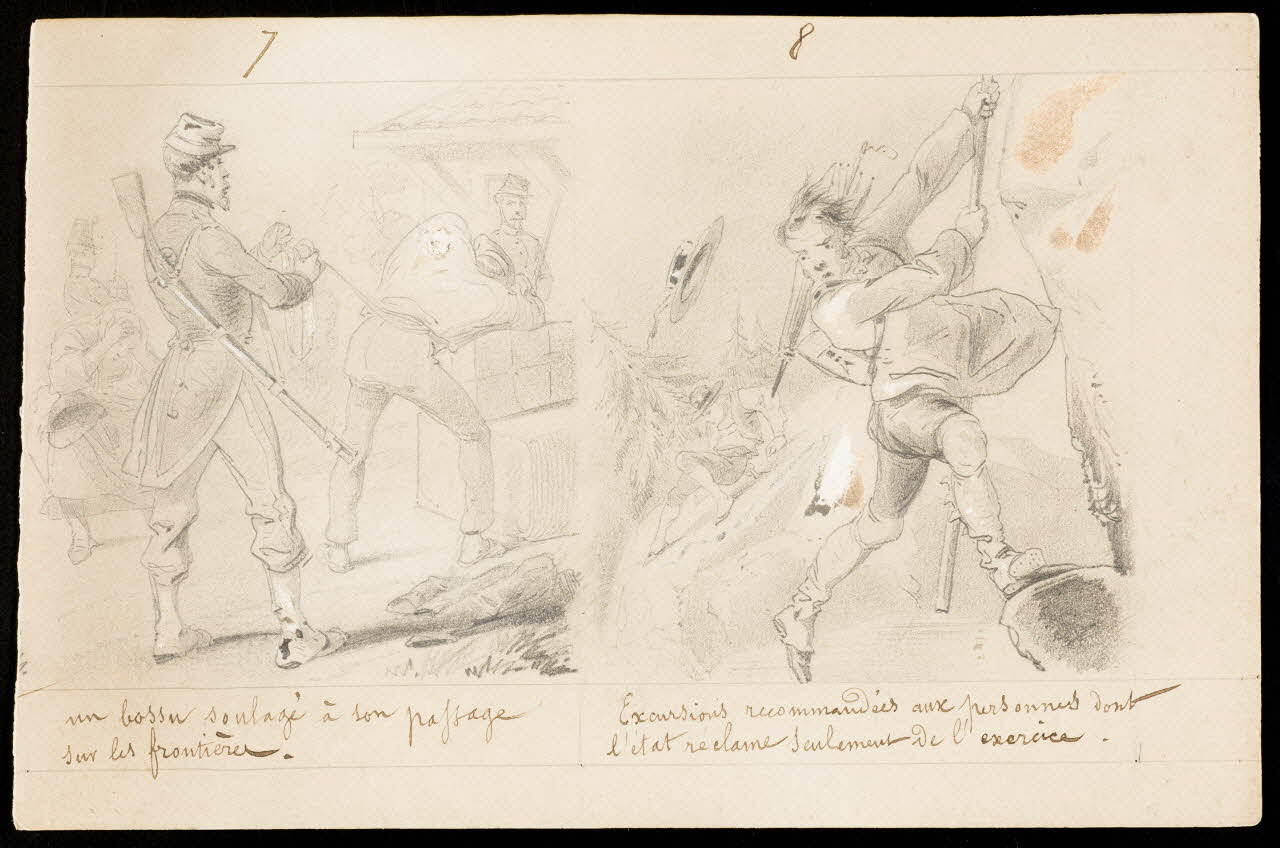 7
8
un bossu soulagé à son passage
sur les frontières.
Excursions recommandées aux personnes dont
l'état réclame seulement de l'exercice.